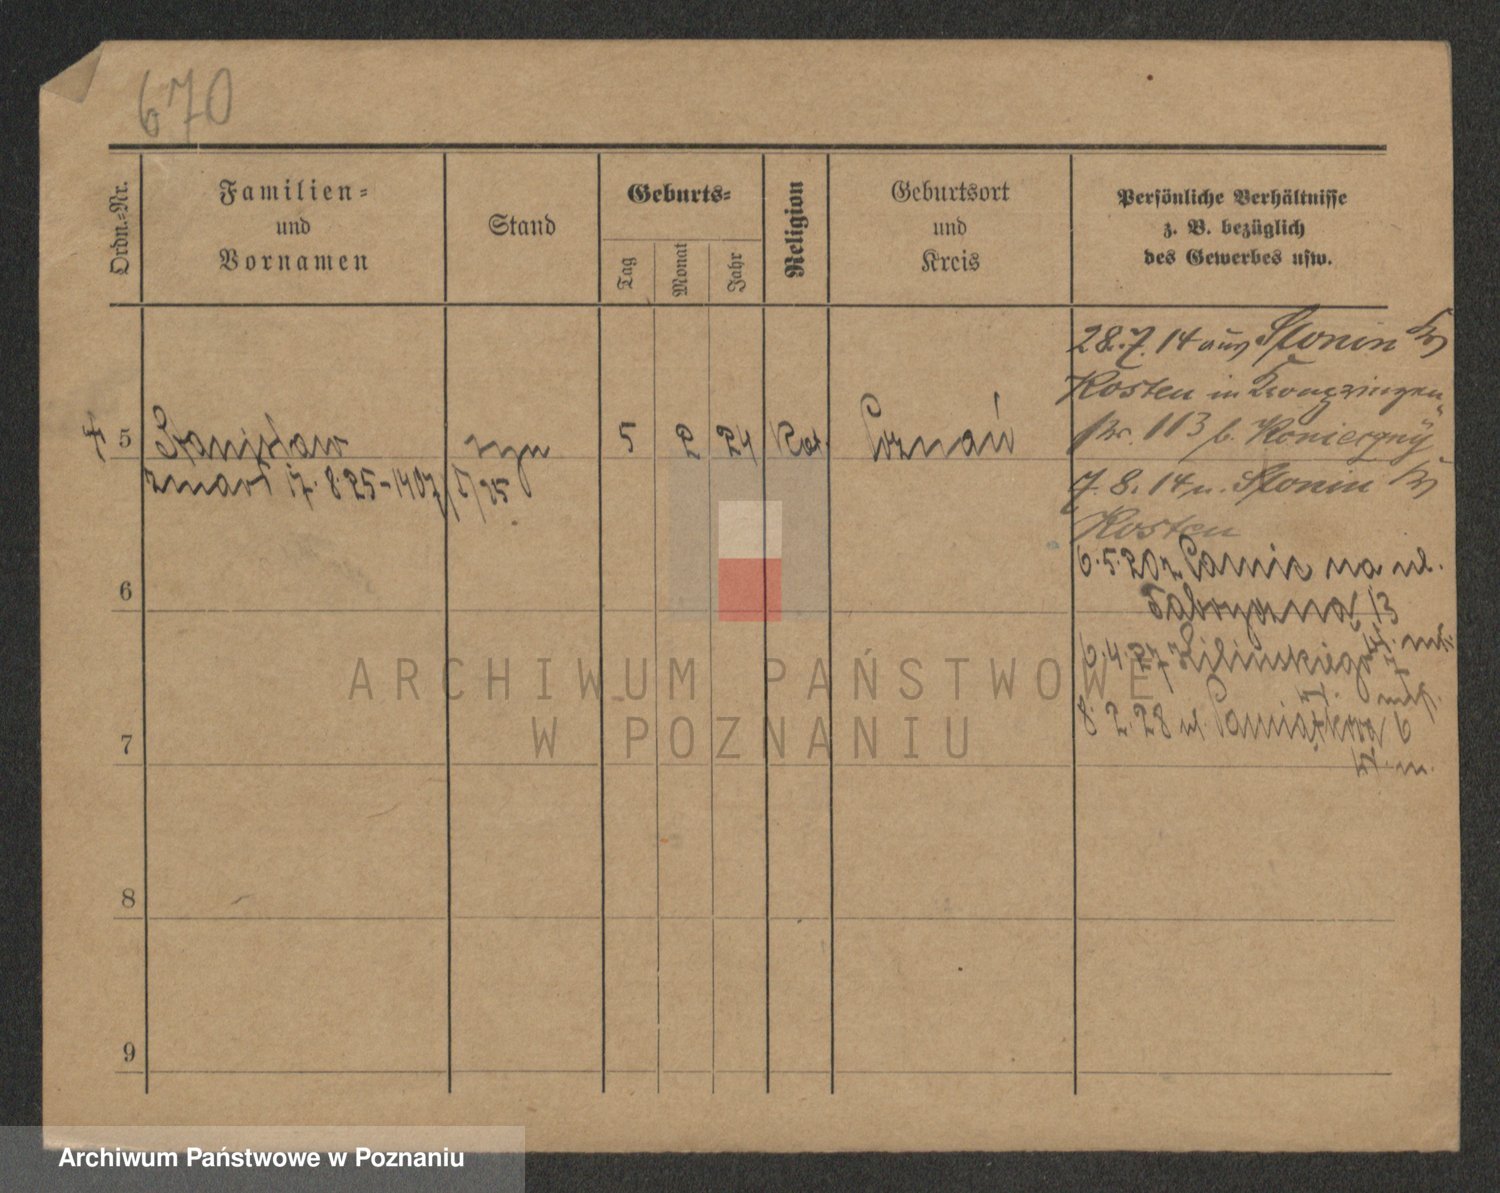 670
Ordn.-Nr.
Familien-
und
Vornamen
Stand
Geburts-
Tag
Monat
Jahr
Religion
Geburtsort
und
Kreis
Persönliche Verhältnisse
z. B. bezüglich
des Gewerbes usw.
28.7.14 aus Slonin Kr
Kosten in Kronprinzen
str. 113 b.
7.8.14 n. Slonin Kr
Kosten
6.5.20 z na ul.
13
6.4.27
8.2.28 ul. Pamiątkowa 6
† 5 Stanisław syn 5 2 24 Kat. Poznań
zmarł 17.8.25-1407/V/25
6
7
8
9
ARCHIWUM PAŃSTWOWE
W POZNANIU
Archiwum Państwowe w Poznaniu